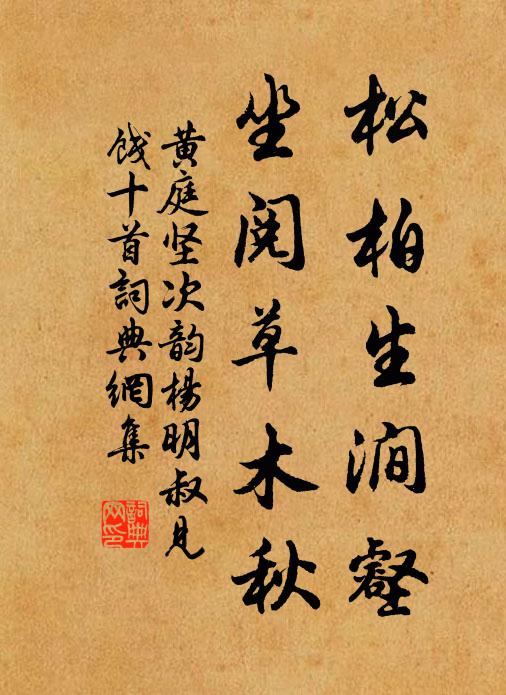 松柏生涧壑
坐阅草木秋
黄庭坚次韵杨明叔见
饯十首词典網集
詞典
网印